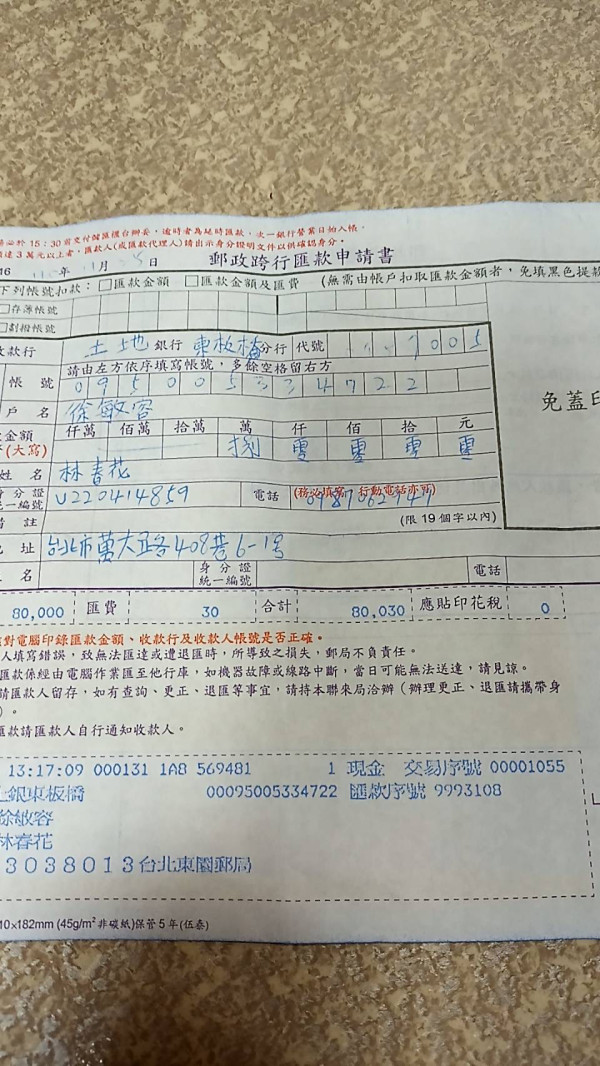 務必於 15:30前交付儲匯櫃台辦妥,逾時者為尾時匯款,次一銀行營業日始入帳。
達3萬元以上者,匯款人(或匯款代理人)請出示身分證明文件以供確認身分。
年 11 月 日
郵政跨行匯款申請書
下列帳號扣款:□匯款金額 □匯款金額及匯費 (無需由帳戶扣取匯款金額者,免填黑色提款
□存簿帳號
□劃撥帳號
收款行 土地 銀行 東板橋 分行 代號 7005
請由左方依序填寫帳號,多餘空格留右方
帳號 095005334722
戶名 徐敏容
免蓋印
金額 仟萬 佰萬 拾萬 萬 仟 佰 拾 元
(大寫) 捌 零 零 零 零
姓名 林春花
身分證 統一編號 U220414859 電話 (務必填寫,行動電話亦可)
附註 (限19個字以內)
地址 台北市萬大路408巷6-1号
名 身分證 統一編號 電話
80,000 匯費 30 合計 80,030 應貼印花稅 0
對電腦印錄匯款金額、收款行及收款人帳號是否正確。
人填寫錯誤,致無法匯達或遭退匯時,所導致之損失,郵局不負責任。
匯款係經由電腦作業匯至他行庫,如機器故障或線路中斷,當日可能無法送達,請見諒。
請匯款人留存,如有查詢、更正、退匯等事宜,請持本聯來局洽辦(辦理更正、退匯請攜帶身
)。
匯款請匯款人自行通知收款人。
13:17:09 000131 1A8 569481 1 現金 交易序號 00001055
土銀東板橋 00095005334722 匯款序號 9993108
徐敏容
林春花
3038013台北東園郵局
10×182mm (45g/m²非碳紙)保管5年(伍泰)